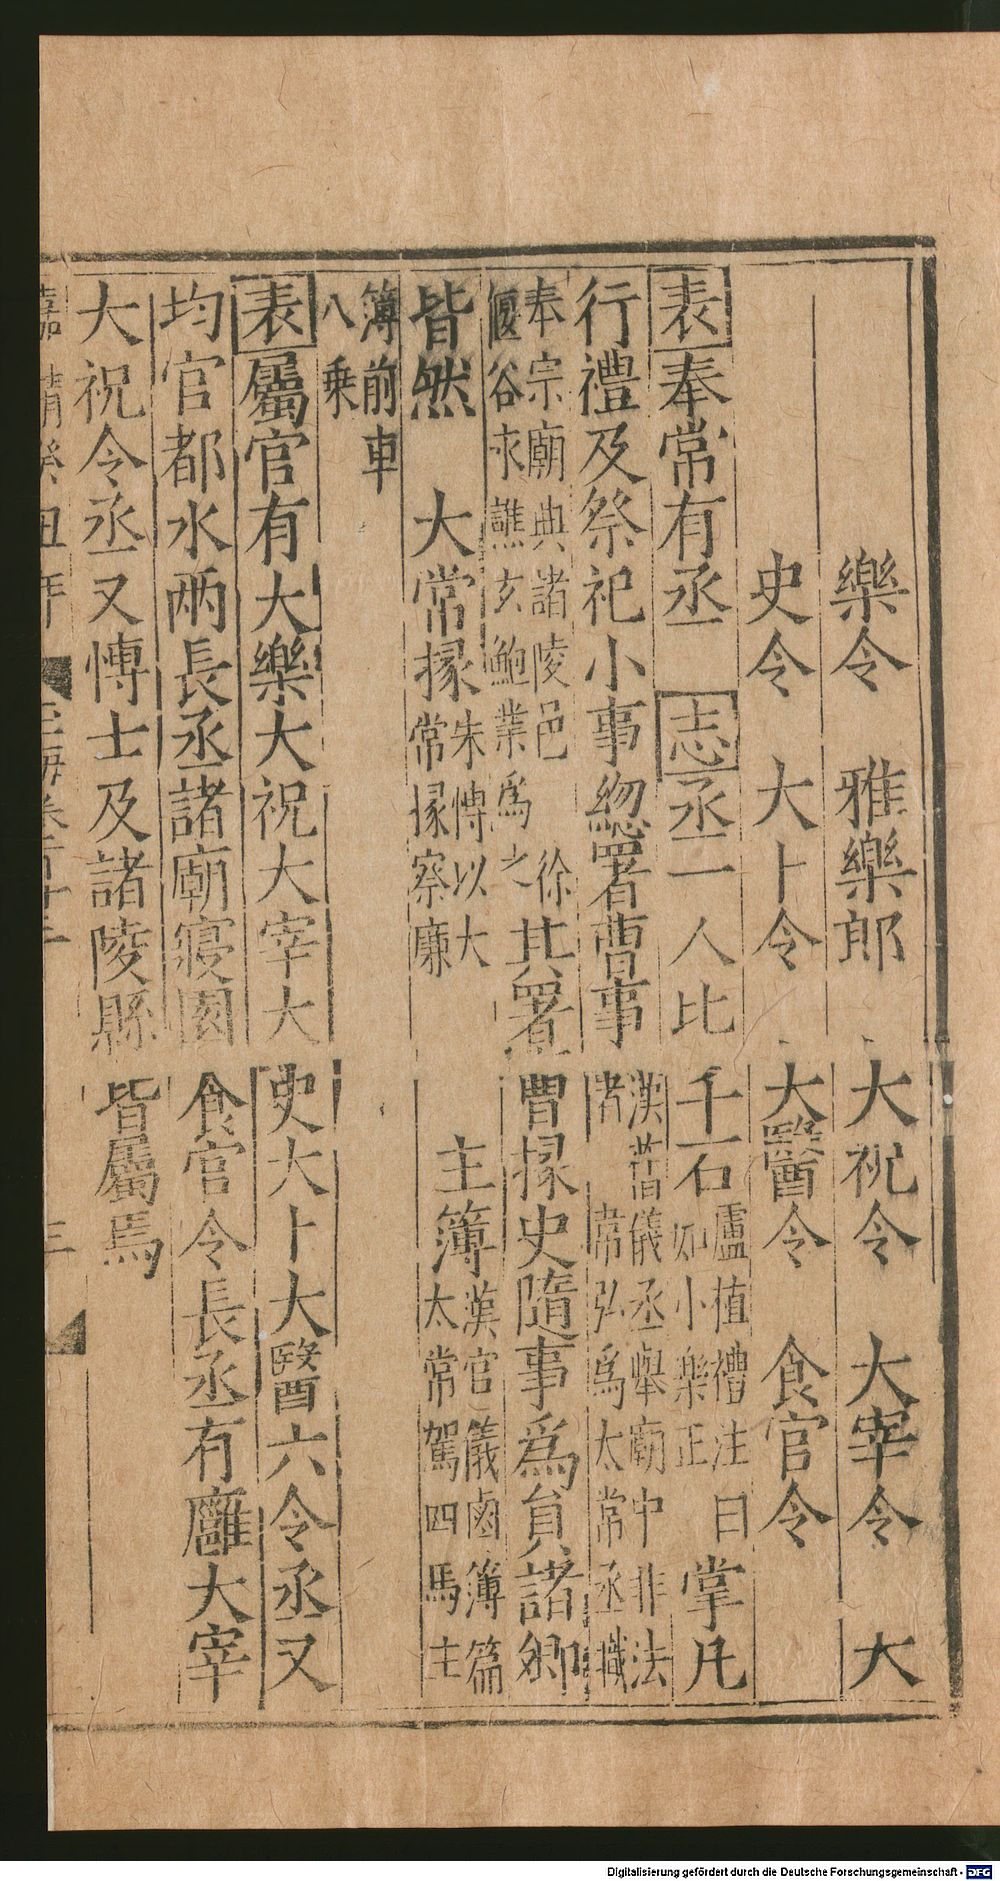 樂令 雅樂郎 大祝令 大宰令 大
史令 大卜令 大醫令 食官令
表奉常有丞 志丞一人比千石盧植禮注曰如小樂正掌凡
行禮及祭祀小事緫署曹事漢舊儀丞舉廟中非法者 常弘爲太常丞職
奉宗廟典諸陵邑 徐偃谷求譙玄鮑業爲之其署曹掾史隨事爲員諸卿
皆然 大常掾朱愽以大常掾察廉 主簿漢官儀鹵簿篇太常駕四馬主
簿前車八乗
表屬官有大樂大祝大宰大史大卜大醫六令丞又
均官都水兩長丞諸廟寝園食官令長丞有廱大宰
大祝令丞又愽士及諸陵縣皆屬焉
嘉靖癸丑年 玉海卷百廿三 三
Digitalisierung gefördert durch die Deutsche Forschungsgemeinschaft - DFG